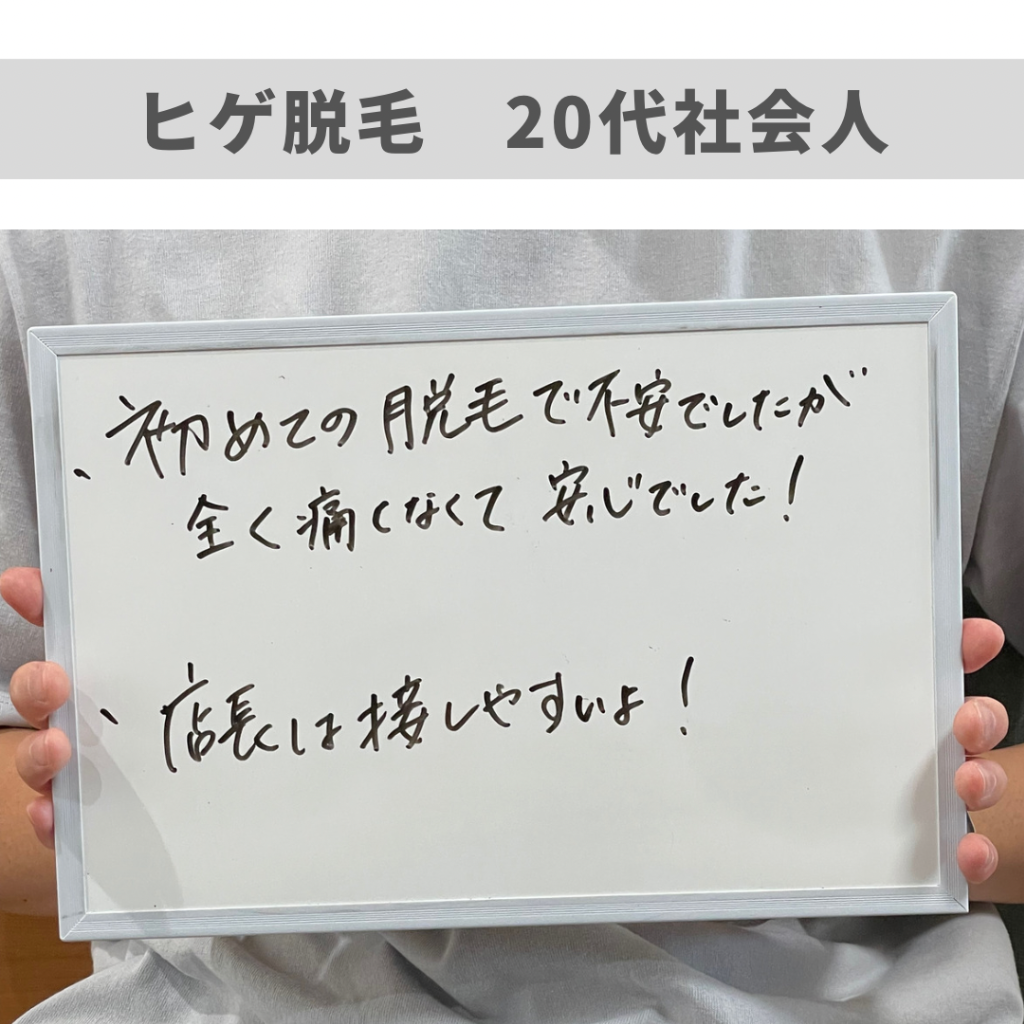 ヒゲ脱毛　20代社会人
、初めての脱毛で不安でしたが
全く痛くなくて 安心でした!
、店長は接しやすいよ!